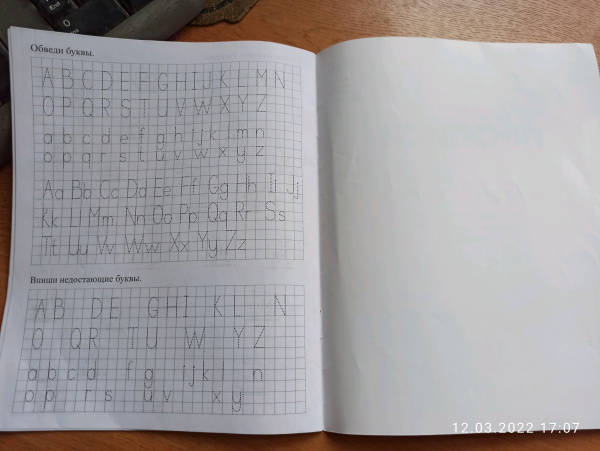 Обведи буквы.
A B C D E F G H I J K L M N
O P Q R S T U V W X Y Z
a b c d e f g h i j k l m n
o p q r s t u v w x y z
Aa Bb Cc Dd Ee Ff Gg Hh Ii Jj
Kk Ll Mm Nn Oo Pp Qq Rr Ss
Tt Uu Vv Ww Xx Yy Zz
Впиши недостающие буквы.
A B D E G H I K L N
O Q R T U W Y Z
a b c d f g i j k l n
o p r s u v x y
12.03.2022 17:07